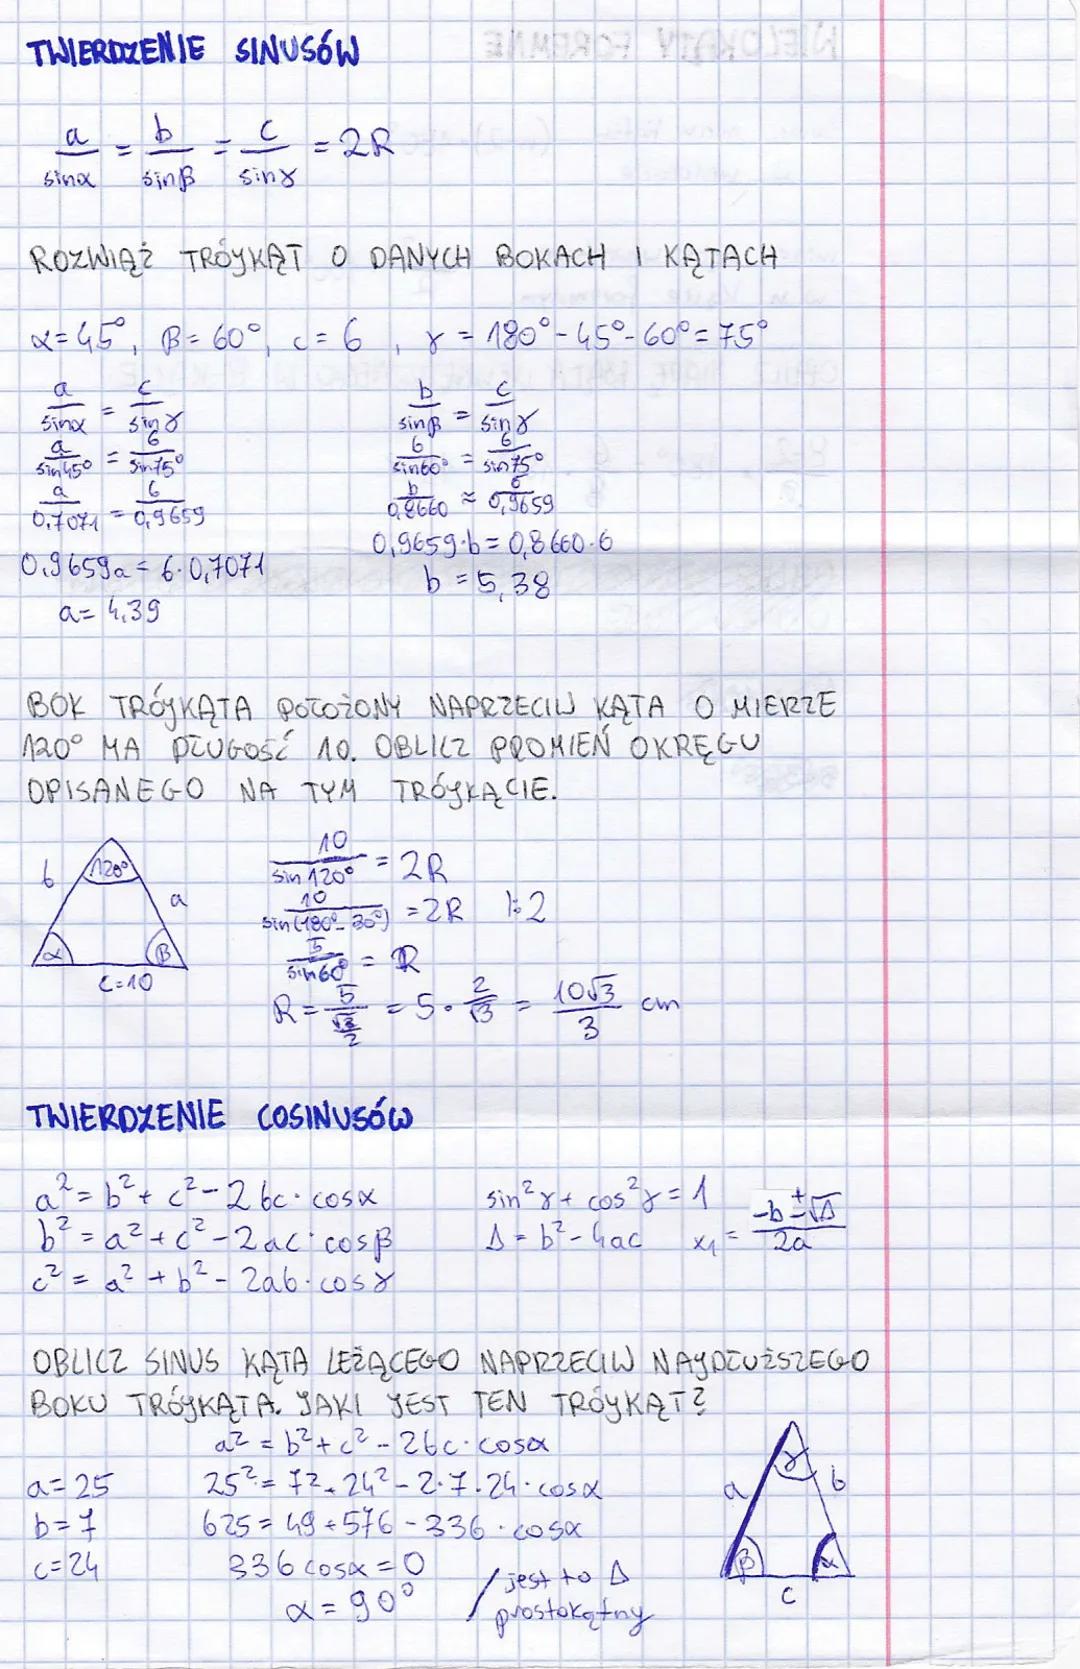 TWIERDZENIE SINUSÓW
a/sinα = b/sinβ = c/sinγ = 2R
ROZWIĄŻ TRÓJKĄT O DANYCH BOKACH I KĄTACH
α=45°, β=60°, c=6, γ=180°-45°-60°=75°
a/sinα = c/sinγ
a/sin45° = 6/sin75°
a/0,7071 = 6/0,9659
0,9659a = 6·0,7071
a=4,39
b/sinβ = c/sinγ
6/sin60° = 6/sin75°
b/0,8660 ≈ 6/0,9659
0,9659·b=0,8660·6
b=5,38
BOK TRÓJKĄTA POŁOŻONY NAPRZECIW KĄTA O MIERZE
120° MA DŁUGOŚĆ 10. OBLICZ PROMIEŃ OKRĘGU
OPISANEGO NA TYM TRÓJKĄCIE.
b 120° a
α β
c=10
10/sin120° = 2R
10/sin(180°-30°) = 2R |:2
5/sin60° = R
R = 5/(√3/2) = 5·2/√3 = 10√3/3 cm
TWIERDZENIE COSINUSÓW
a²=b²+c²-2bc·cosα
b²=a²+c²-2ac·cosβ
c²=a²+b²-2ab·cosγ
sin²γ+cos²γ=1
Δ=b²-4ac x₁=(-b±√Δ)/2a
OBLICZ SINUS KĄTA LEŻĄCEGO NAPRZECIW NAJDŁUŻSZEGO
BOKU TRÓJKĄTA. JAKI JEST TEN TRÓJKĄT?
a=25
b=7
c=24
a²=b²+c²-2bc·cosα
25²=7²+24²-2·7·24·cosα
625=49+576-336·cosα
336cosα=0
α=90°
/jest to Δ
prostokątny
a γ b
β α
c